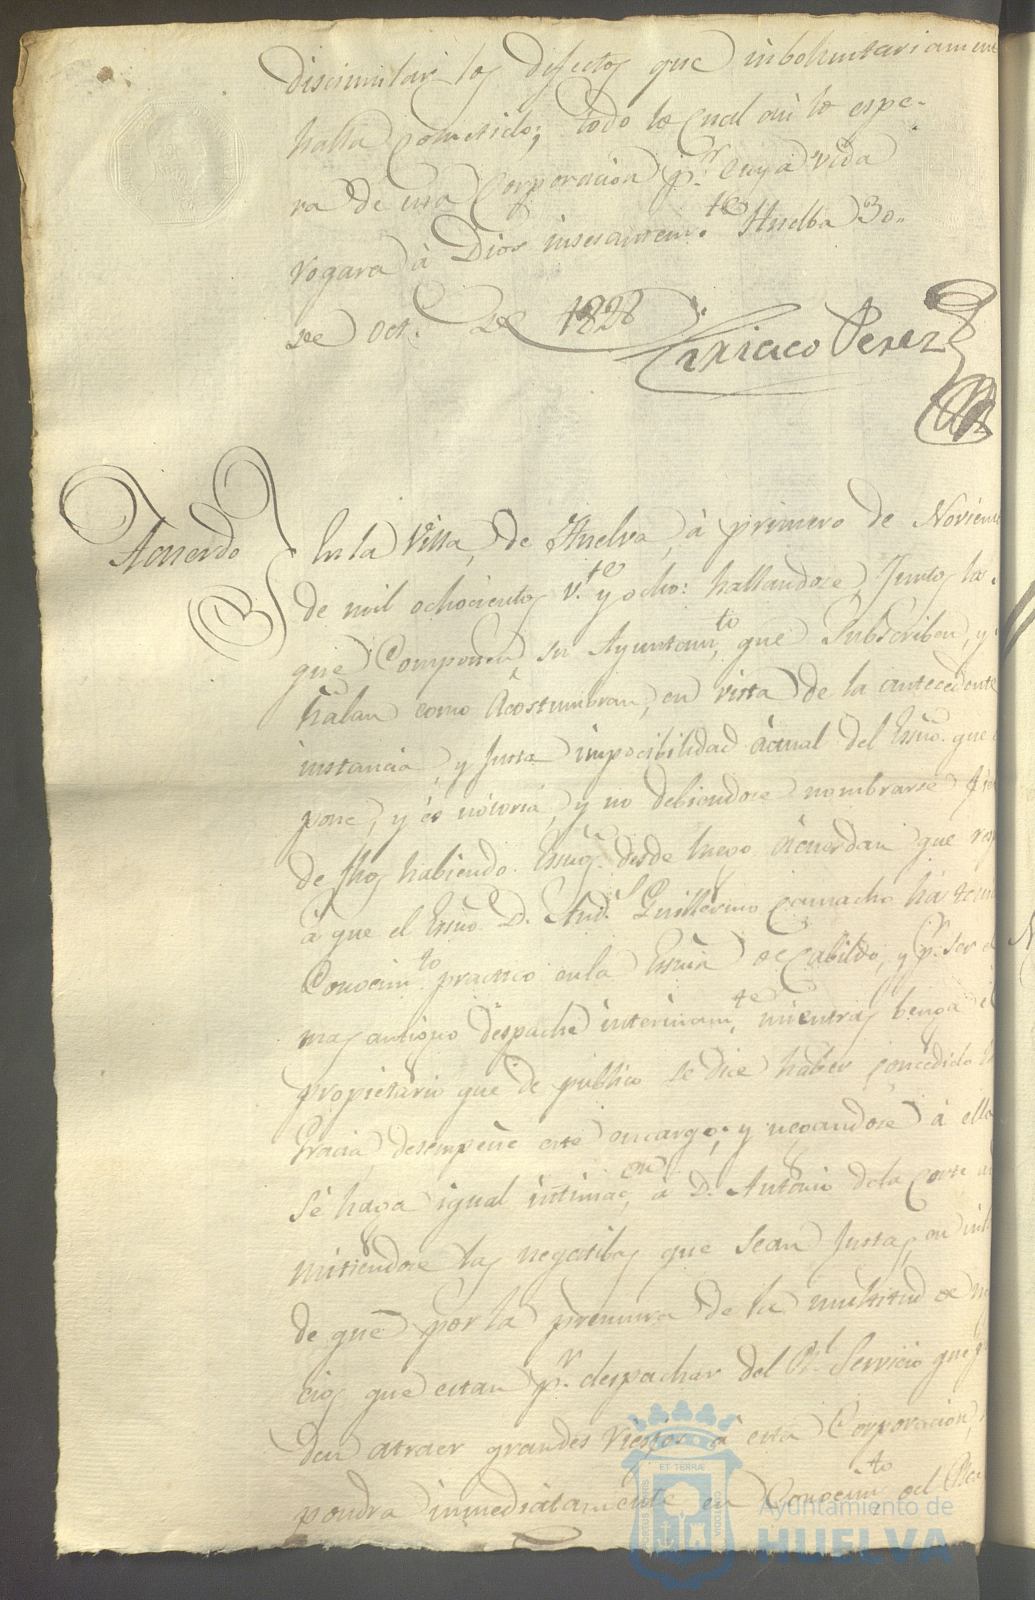 discimular los defectos que inboluntariamen
halla cometido; todo lo cual asi lo espe-
ra de esa Corporacion p.r cuya vida
rogara à Dios insesantem.te Huelba 30..
de Oct. de 1828
Ciriaco Perez
Acuerdo
En la Villa, de Huelva, à primero de Noviem
de mil ochocientos v.te y ocho: hallandose Juntos los
que Componen su Ayuntam.to que Subscriben, y
halan como Acostumbran, en vista de la antecedente
instancia, y Justa impocibilidad àctual del Essno. que
pone, y és notoria, y no debiendose nombrarse
de fhos habiendo Essnos. desde luego acuerdan que
à que el Essno D. And.s Guillermo Camacho há
Conocim.to practico en la Essnia de Cabildo, y p.r ser
mas antiguo despache interinam.te mientras benga
propietario que de publico se dice haber concedido
Gracia, desempeñe este encargo; y negandose à ello
Sè haga igual intimac.on à D. Antonio de la Corte
mitiendose las negatibas que sean Justas, en
de que por la premura de la multitud de
cios que estan p.r despachar del R.l Servicio que
den atraer grandes riesgos à esta Corporacion,
pondra inmediatamente en Conocim.to del
ET TERRAE
Ayuntamiento de
HUELVA